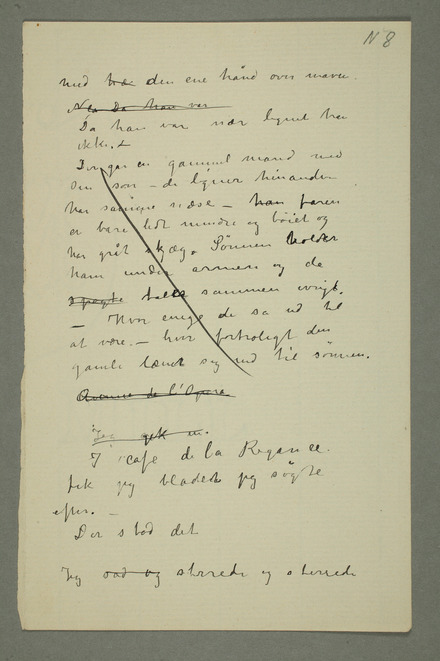 N 8
med hæ den ene hånd over maven.
Nla Da han var
Da han var nær lignet han
ikke. –
Der gar en gammel mand med
sin son – de ligner hinanden
har samme næse – han faren
er bare lidt mindre og böiet og
har gråt skjæg. Sønnen holder
ham under armen og de
spogte taler sammen ivrigt.
– Hvor enige de så ud til
at være. – hvor fortroligt den
gamle lænet sig ned til sönnen.
Avenue de l'Opera
Jeg gik en.
I cafe de la Regance
fik jeg bladet jeg søgte
efter. –
Der stod det
Jeg sad og stirrede og stirrede